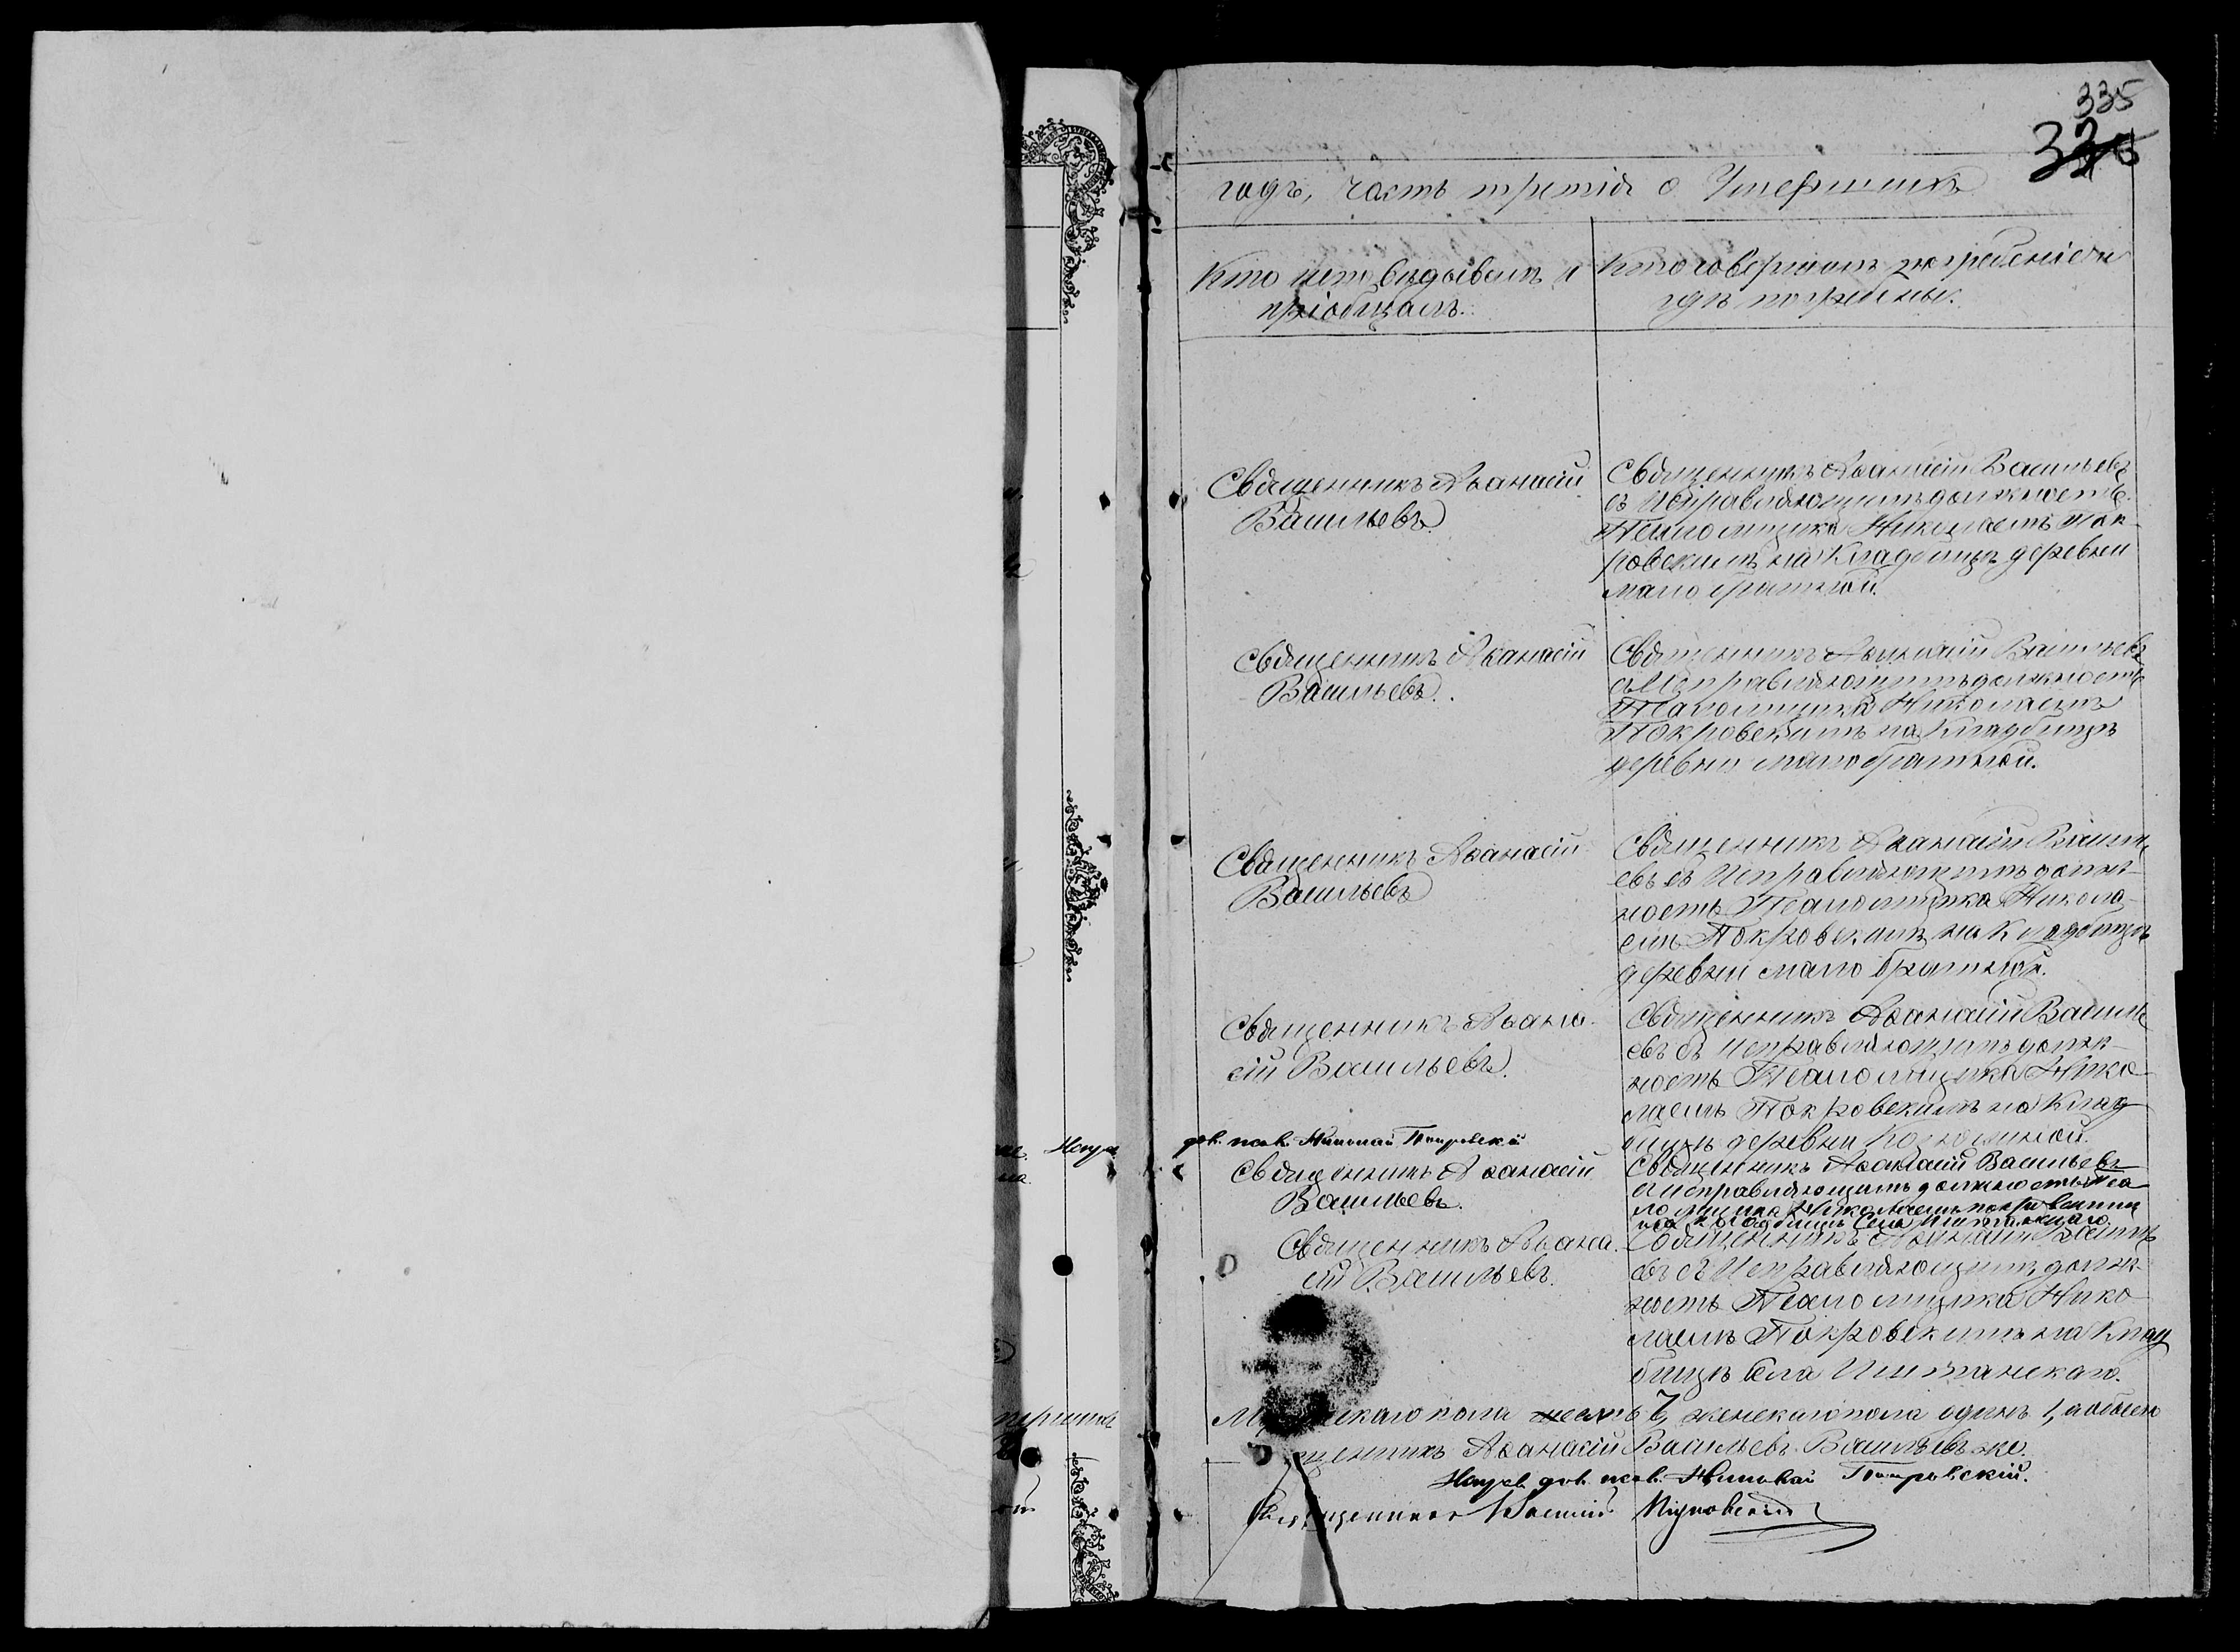 335
годъ, часть третія о Умершихъ
Кто исповѣдывалъ и
пріобщалъ.
Кто совершалъ погребеніе и
гдѣ погребены.
Священникъ Аѳанасій
Васильевъ
Священникъ Аѳанасій Васильевъ
съ Исправляющимъ должность
Псаломщика Николаемъ Пок-
ровскимъ на Кладбищѣ деревни
мало братной.
Священникъ Аѳанасій
Васильевъ.
Священникъ Аѳанасій Васильевъ
съ Исправляющимъ должность
Псаломщика Николаемъ
Покровскимъ на Кладбищѣ
деревни мало братной.
Священникъ Аѳанасій
Васильевъ
Священникъ Аѳанасій Василь
евъ съ Исправляющимъ долж-
ность Псаломщика Никола-
емъ Покровскимъ на Кладбищѣ
деревни мало братной.
Священникъ Аѳана-
сій Васильевъ.
Священникъ Аѳанасій Василь
евъ съ Исправляющимъ долж-
ность Псаломщика Нико-
лаемъ Покровскимъ на Клад
бищѣ деревни
дов. псал. Николай Покровскій
Священникъ Аѳанасій
Васильевъ.
Священникъ Аѳанасій Васильевъ
съ исправляющимъ должность Пса
ломщика Николаемъ Покровскимъ
на Кладбищѣ Села
Священникъ Аѳана-
сій Васильевъ.
Священникъ Аѳанасій Василь
евъ съ Исправляющимъ долж-
ность Псаломщика Нико-
лаемъ Покровскимъ на Клад
бищѣ Села
пола 7, женскаго пола одинъ 1, а обоего
Аѳанасій Васильевъ Васильевъ же.
дов. псал. Николай Покровскій.
Священникъ